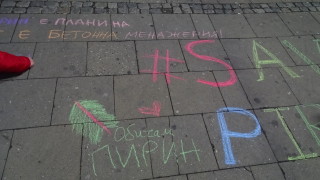 Е ПЛАНИНА
Е БЕТОННА МЕНАЖЕРИЯ!
#SAV
Обичам
ПИРИН
PIR